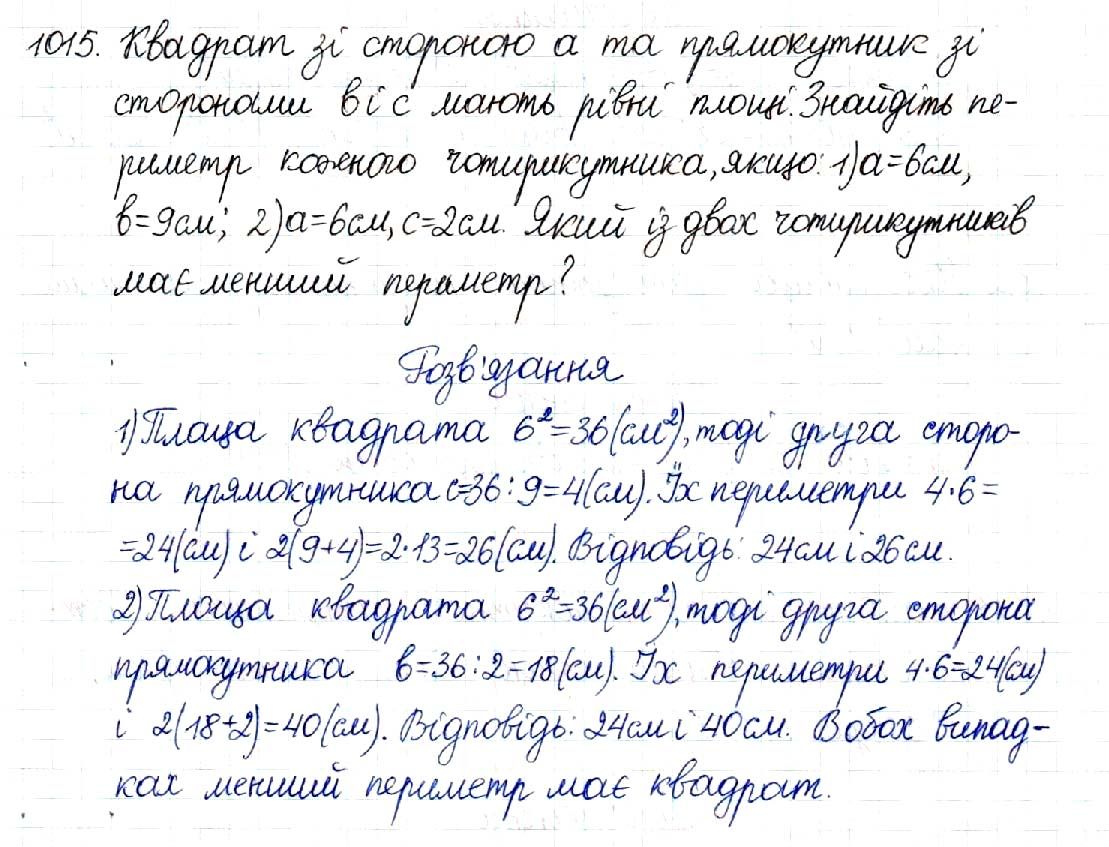 1015. Квадрат зі стороною а та прямокутник зі
сторонами в і с мають рівні площі. Знайдіть пе-
риметр кожного чотирикутника, якщо: 1) а=6см,
в=9см; 2) а=6см, с=2см. Який із двох чотирикутників
має менший периметр?
Розв'язання
1) Площа квадрата 6²=36(см²), тоді друга сторо-
на прямокутника с=36:9=4(см). Їх периметри 4·6=
=24(см) і 2(9+4)=2·13=26(см). Відповідь: 24см і 26см.
2) Площа квадрата 6²=36(см²), тоді друга сторона
прямокутника в=36:2=18(см). Їх периметри 4·6=24(см)
і 2(18+2)=40(см). Відповідь: 24см і 40см. В обох випад-
ках менший периметр має квадрат.